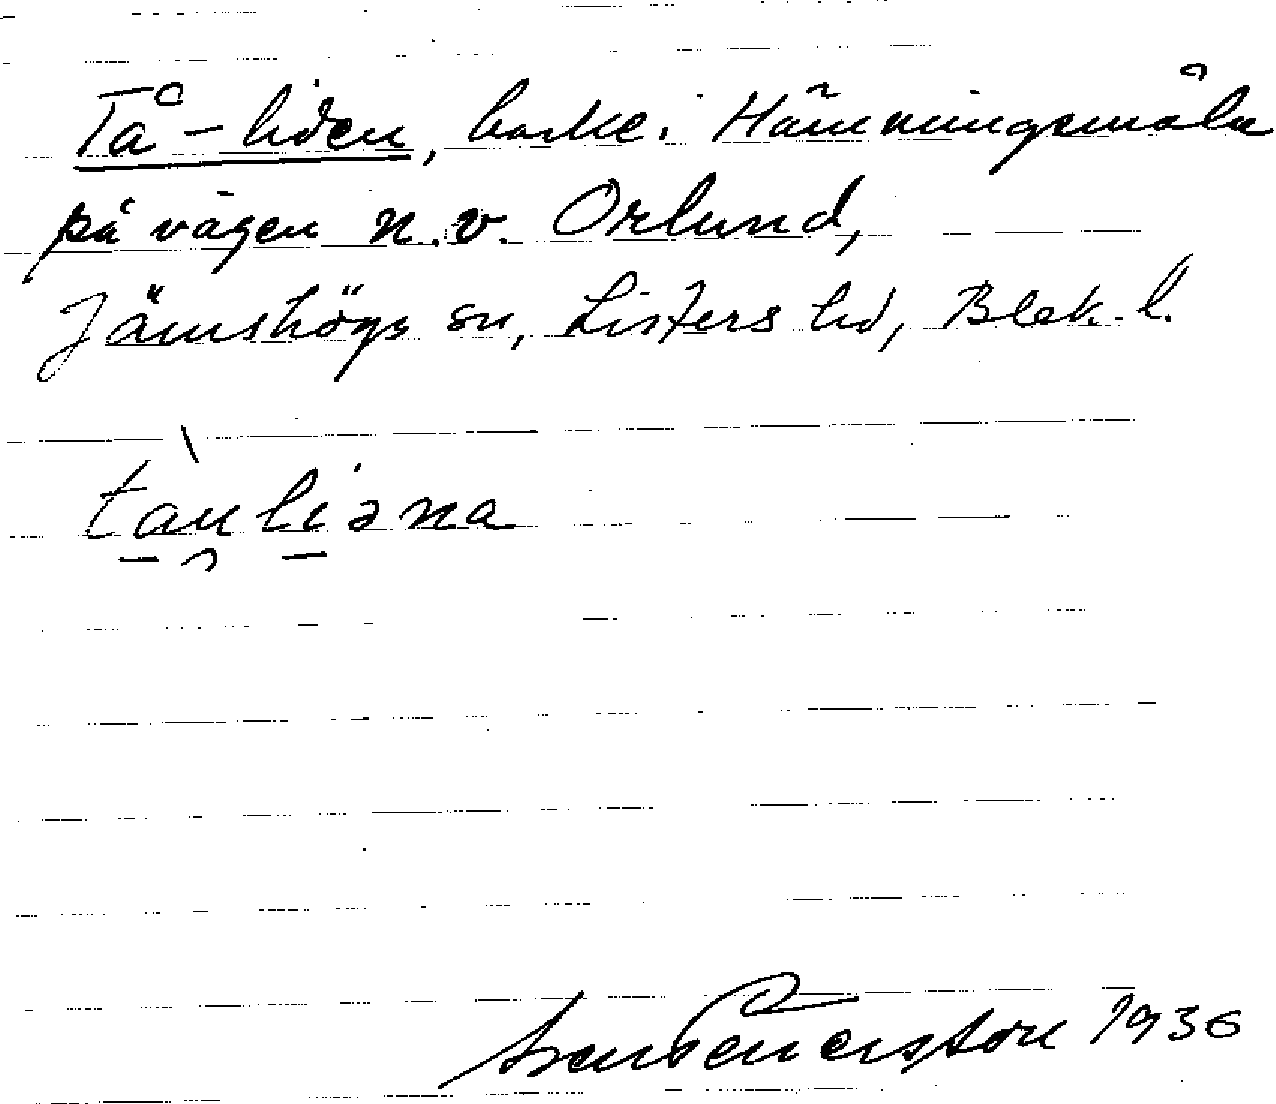 Tå-liden, backe i Hämmingsmåla
på vägen n.v. Orlund,
Jämshögs sn, Listers hd, Blek. l.
tàuliəna
Sven Benerston 1936